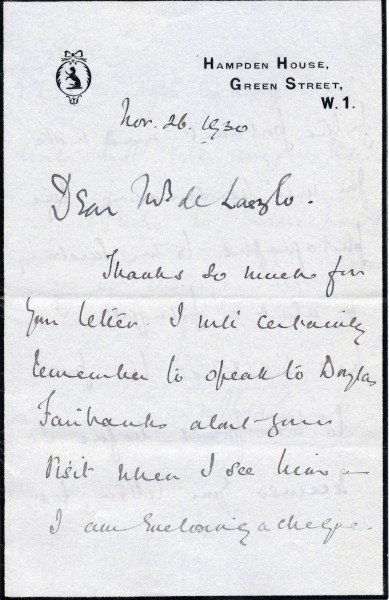 HAMPDEN HOUSE,
GREEN STREET,
W. 1.
Nov. 26. 1930
Dear Mr de Laszlo.
Thanks so much for
your letter. I will certainly
remember to speak to Douglas
Fairbanks about your
visit when I see him —
I am enclosing a cheque